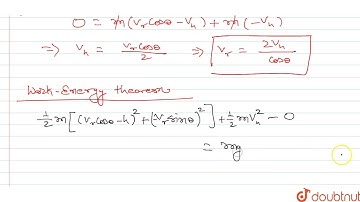 0 = m(Vr cosθ - Vh) + m(-Vh)
⇒ Vh = Vr cosθ / 2 ⇒ Vr = 2Vh / cosθ
Work-Energy theorem
1/2 m[(Vr cosθ - h)² + (Vr sinθ)²] + 1/2 m Vh² - 0
= mg
doubtnut